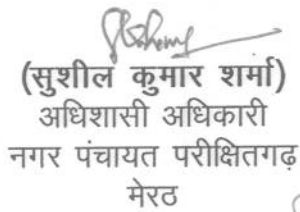 (सुशील कुमार शर्मा)
अधिशासी अधिकारी
नगर पंचायत परीक्षितगढ़
मेरठ